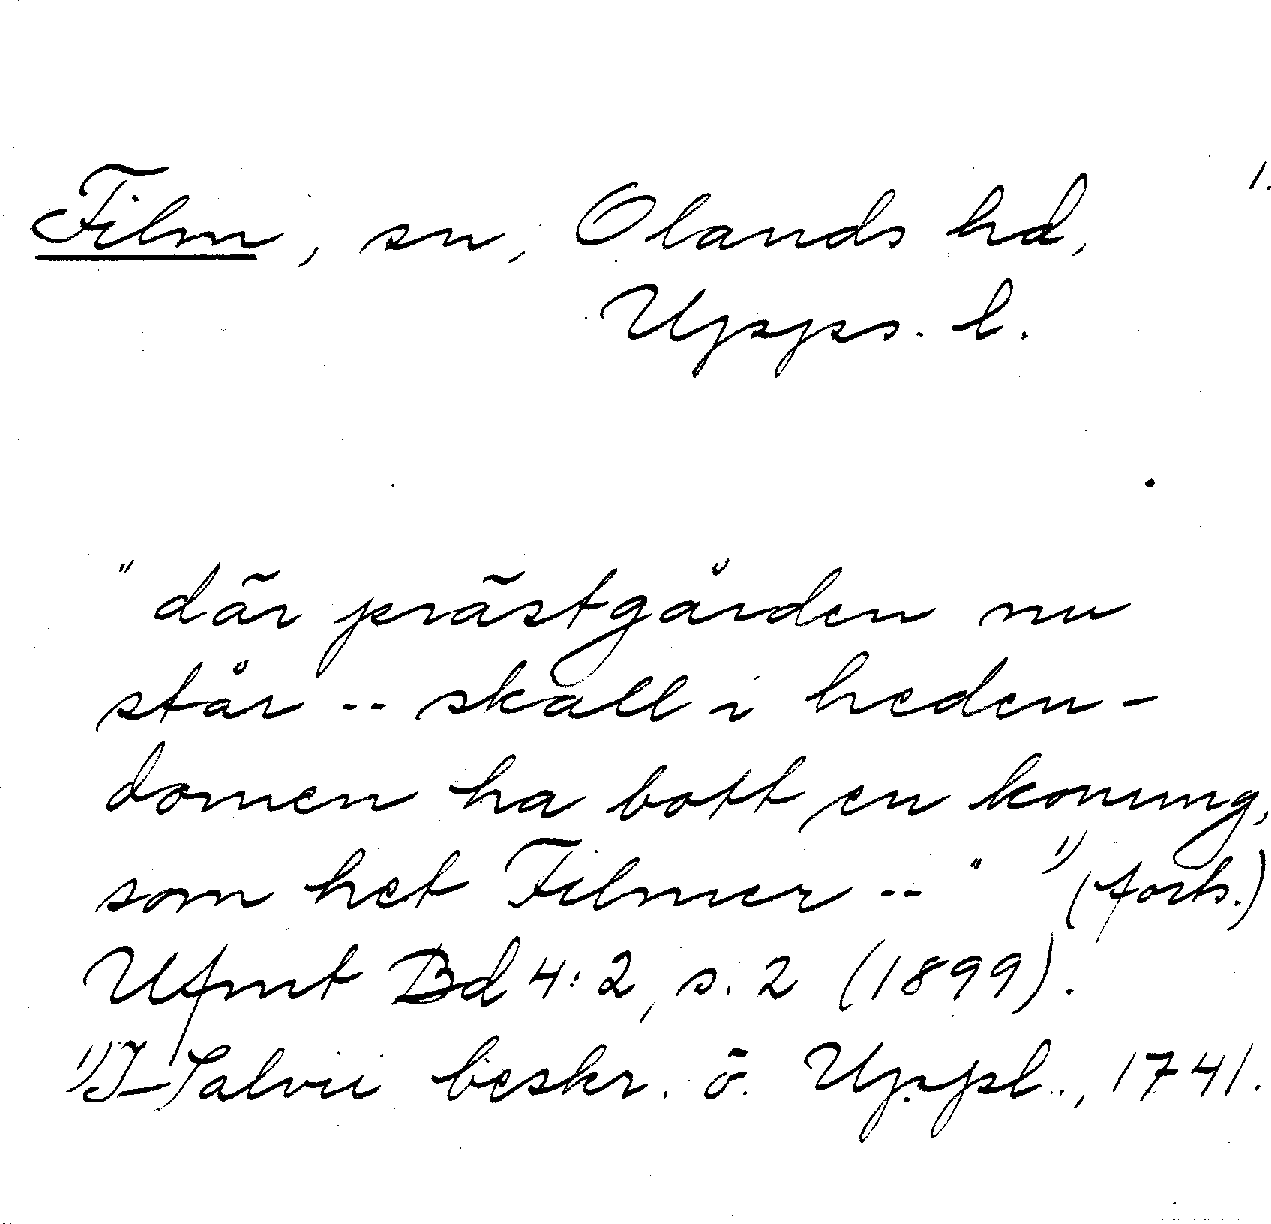 1.
Film, sn, Olands hd,
Upps. l.
"där prästgården nu
står -- skall i heden-
domen ha bott en konung,
som het Filmer -- " 1) (forts.)
Ufmt Bd 4:2, s. 2 (1899).
1) I Salvii beskr. ö. Uppl., 1741.